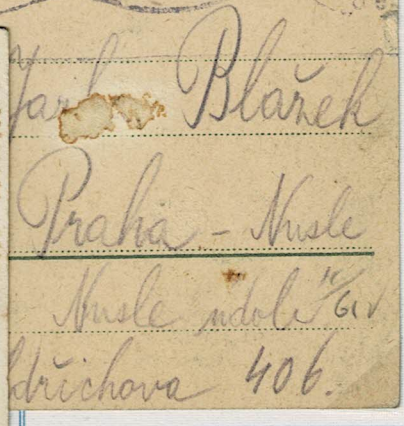 Blažek
Praha - Nusle
Nusle udolí
dřichova 406.